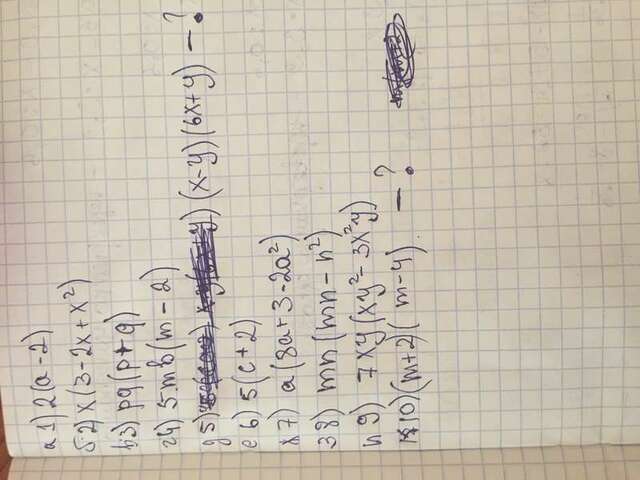 а 1) 2(a-2)
б 2) x(3-2x+x²)
в 3) pq(p+q)
г 4) 5mb(m-2)
д 5) (x-y)(6x+y) - ?
е 6) 5(c+2)
ж 7) a(8a+3-2a²)
з 8) mn(mn-n²)
и 9) 7xy(xy²-3x²y)
к 10) (m+2)(m-4) - ?